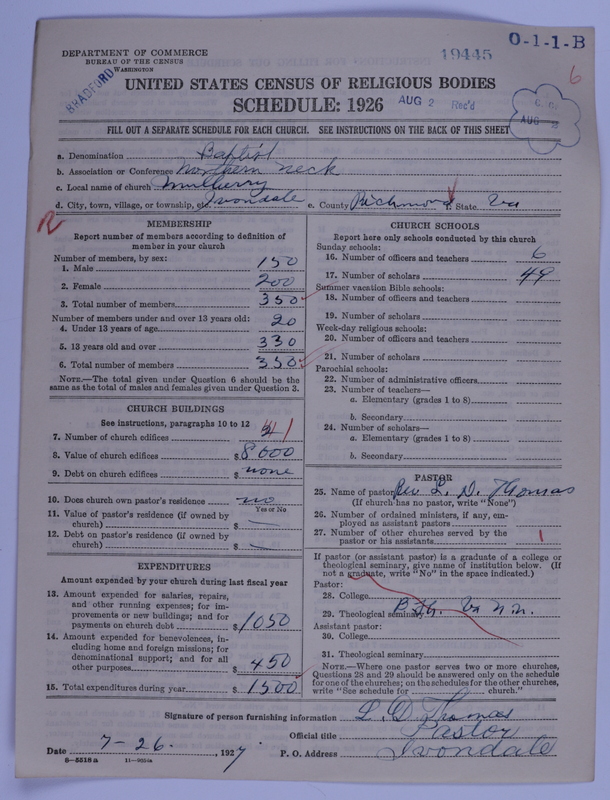 DEPARTMENT OF COMMERCE
BUREAU OF THE CENSUS
WASHINGTON
BRADFORD
19445
O-1-1-B
6
UNITED STATES CENSUS OF RELIGIOUS BODIES
SCHEDULE: 1926
AUG 2 Rec'd
AUG 2
FILL OUT A SEPARATE SCHEDULE FOR EACH CHURCH. SEE INSTRUCTIONS ON THE BACK OF THIS SHEET
a. Denomination Baptist
b. Association or Conference Northern Neck
c. Local name of church Mulberry
d. City, town, village, or township, etc. Ivondale e. County Richmond f. State Va
R
MEMBERSHIP
Report number of members according to definition of
member in your church
Number of members, by sex:
1. Male 150
2. Female 200
3. Total number of members 350
Number of members under and over 13 years old:
4. Under 13 years of age 20
5. 13 years old and over 330
6. Total number of members 350
NOTE.—The total given under Question 6 should be the
same as the total of males and females given under Question 3.
CHURCH BUILDINGS
See instructions, paragraphs 10 to 12
7. Number of church edifices 1
8. Value of church edifices $8000
9. Debt on church edifices $none
10. Does church own pastor's residence no
Yes or No
11. Value of pastor's residence (if owned by
church) $ —
12. Debt on pastor's residence (if owned by
church) $ —
EXPENDITURES
Amount expended by your church during last fiscal year
13. Amount expended for salaries, repairs,
and other running expenses; for im-
provements or new buildings; and for
payments on church debt $1050
14. Amount expended for benevolences, in-
cluding home and foreign missions; for
denominational support; and for all
other purposes $450
15. Total expenditures during year $1500
CHURCH SCHOOLS
Report here only schools conducted by this church
Sunday schools:
16. Number of officers and teachers 6
17. Number of scholars 49
Summer vacation Bible schools:
18. Number of officers and teachers
19. Number of scholars
Week-day religious schools:
20. Number of officers and teachers
21. Number of scholars
Parochial schools:
22. Number of administrative officers
23. Number of teachers—
a. Elementary (grades 1 to 8)
b. Secondary
24. Number of scholars—
a. Elementary (grades 1 to 8)
b. Secondary
PASTOR
25. Name of pastor Rev L. D. Thomas
(If church has no pastor, write "None")
26. Number of ordained ministers, if any, em-
ployed as assistant pastors
27. Number of other churches served by the
pastor or his assistants 1
If pastor (or assistant pastor) is a graduate of a college or
theological seminary, give name of institution below. (If
not a graduate, write "No" in the space indicated.)
Pastor:
28. College
29. Theological seminary Va
Assistant pastor:
30. College
31. Theological seminary
NOTE.—Where one pastor serves two or more churches,
Questions 28 and 29 should be answered only on the schedule
for one of the churches; on the schedules for the other churches,
write "See schedule for church."
Signature of person furnishing information L. D. Thomas
Official title Pastor
Date 7-26. , 1927. P. O. Address Ivondale
8—5518a 11—9054a